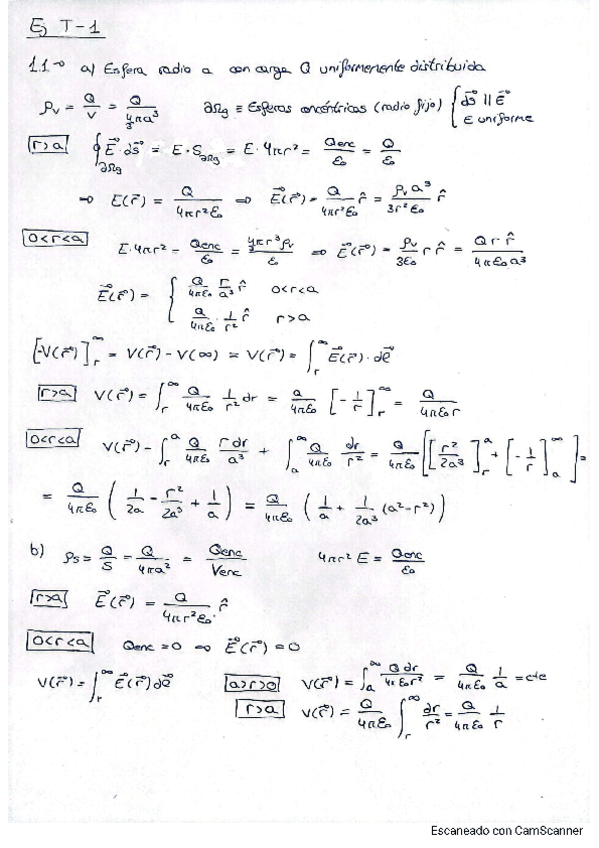 Ej T-1
1.1-> a) Esfera radio a con carga Q uniformemente distribuida
ρv = Q/V = Q/(4/3 πa³)    ∂Rg ≡ Esferas concéntricas (radio fijo) { ds⃗ || E⃗
E uniforme
r>a  ∮∂Rg E⃗·ds⃗ = E·S∂Rg = E·4πr² = Qenc/ε₀ = Q/ε₀
⇒ E(r⃗) = Q/(4πr²ε₀) ⇒ E⃗(r⃗) = Q/(4πr²ε₀) r̂ = ρv a³/(3r²ε₀) r̂
0<r<a  E·4πr² = Qenc/ε₀ = (4/3 πr³ρv)/ε₀ ⇒ E⃗(r⃗) = ρv/(3ε₀) r r̂ = Q r · r̂/(4πε₀a³)
E⃗(r⃗) = { Q/(4πε₀) r/a³ r̂    0<r<a
Q/(4πε₀) · 1/r² r̂    r>a
[-V(r⃗)]r^∞ = V(r⃗) - V(∞) = V(r⃗) = ∫r^∞ E⃗(r⃗)·dℓ⃗
r>a  V(r⃗) = ∫r^∞ Q/(4πε₀) 1/r² dr = Q/(4πε₀) [-1/r]r^∞ = Q/(4πε₀r)
0<r<a  V(r⃗) = ∫r^a Q/(4πε₀) r dr/a³ + ∫a^∞ Q/(4πε₀) dr/r² = Q/(4πε₀) [[r²/2a³]r^a + [-1/r]a^∞] =
= Q/(4πε₀) (1/2a - r²/2a³ + 1/a) = Q/(4πε₀) (1/a + 1/2a³ (a²-r²))
b)  ρs = Q/S = Q/(4πa²) = Qenc/Venc    4πr² E = Qenc/ε₀
r>a  E⃗(r⃗) = Q/(4πr²ε₀) · r̂
0<r<a  Qenc=0 ⇒ E⃗(r⃗)=0
V(r⃗) = ∫r^∞ E⃗(r⃗)dℓ⃗    a>r>0  V(r⃗) = ∫a^∞ Q dr/(4πε₀r²) = Q/(4πε₀) 1/a = cte
r>a  V(r⃗) = Q/(4πε₀) ∫r^∞ dr/r² = Q/(4πε₀) 1/r
Escaneado con CamScanner